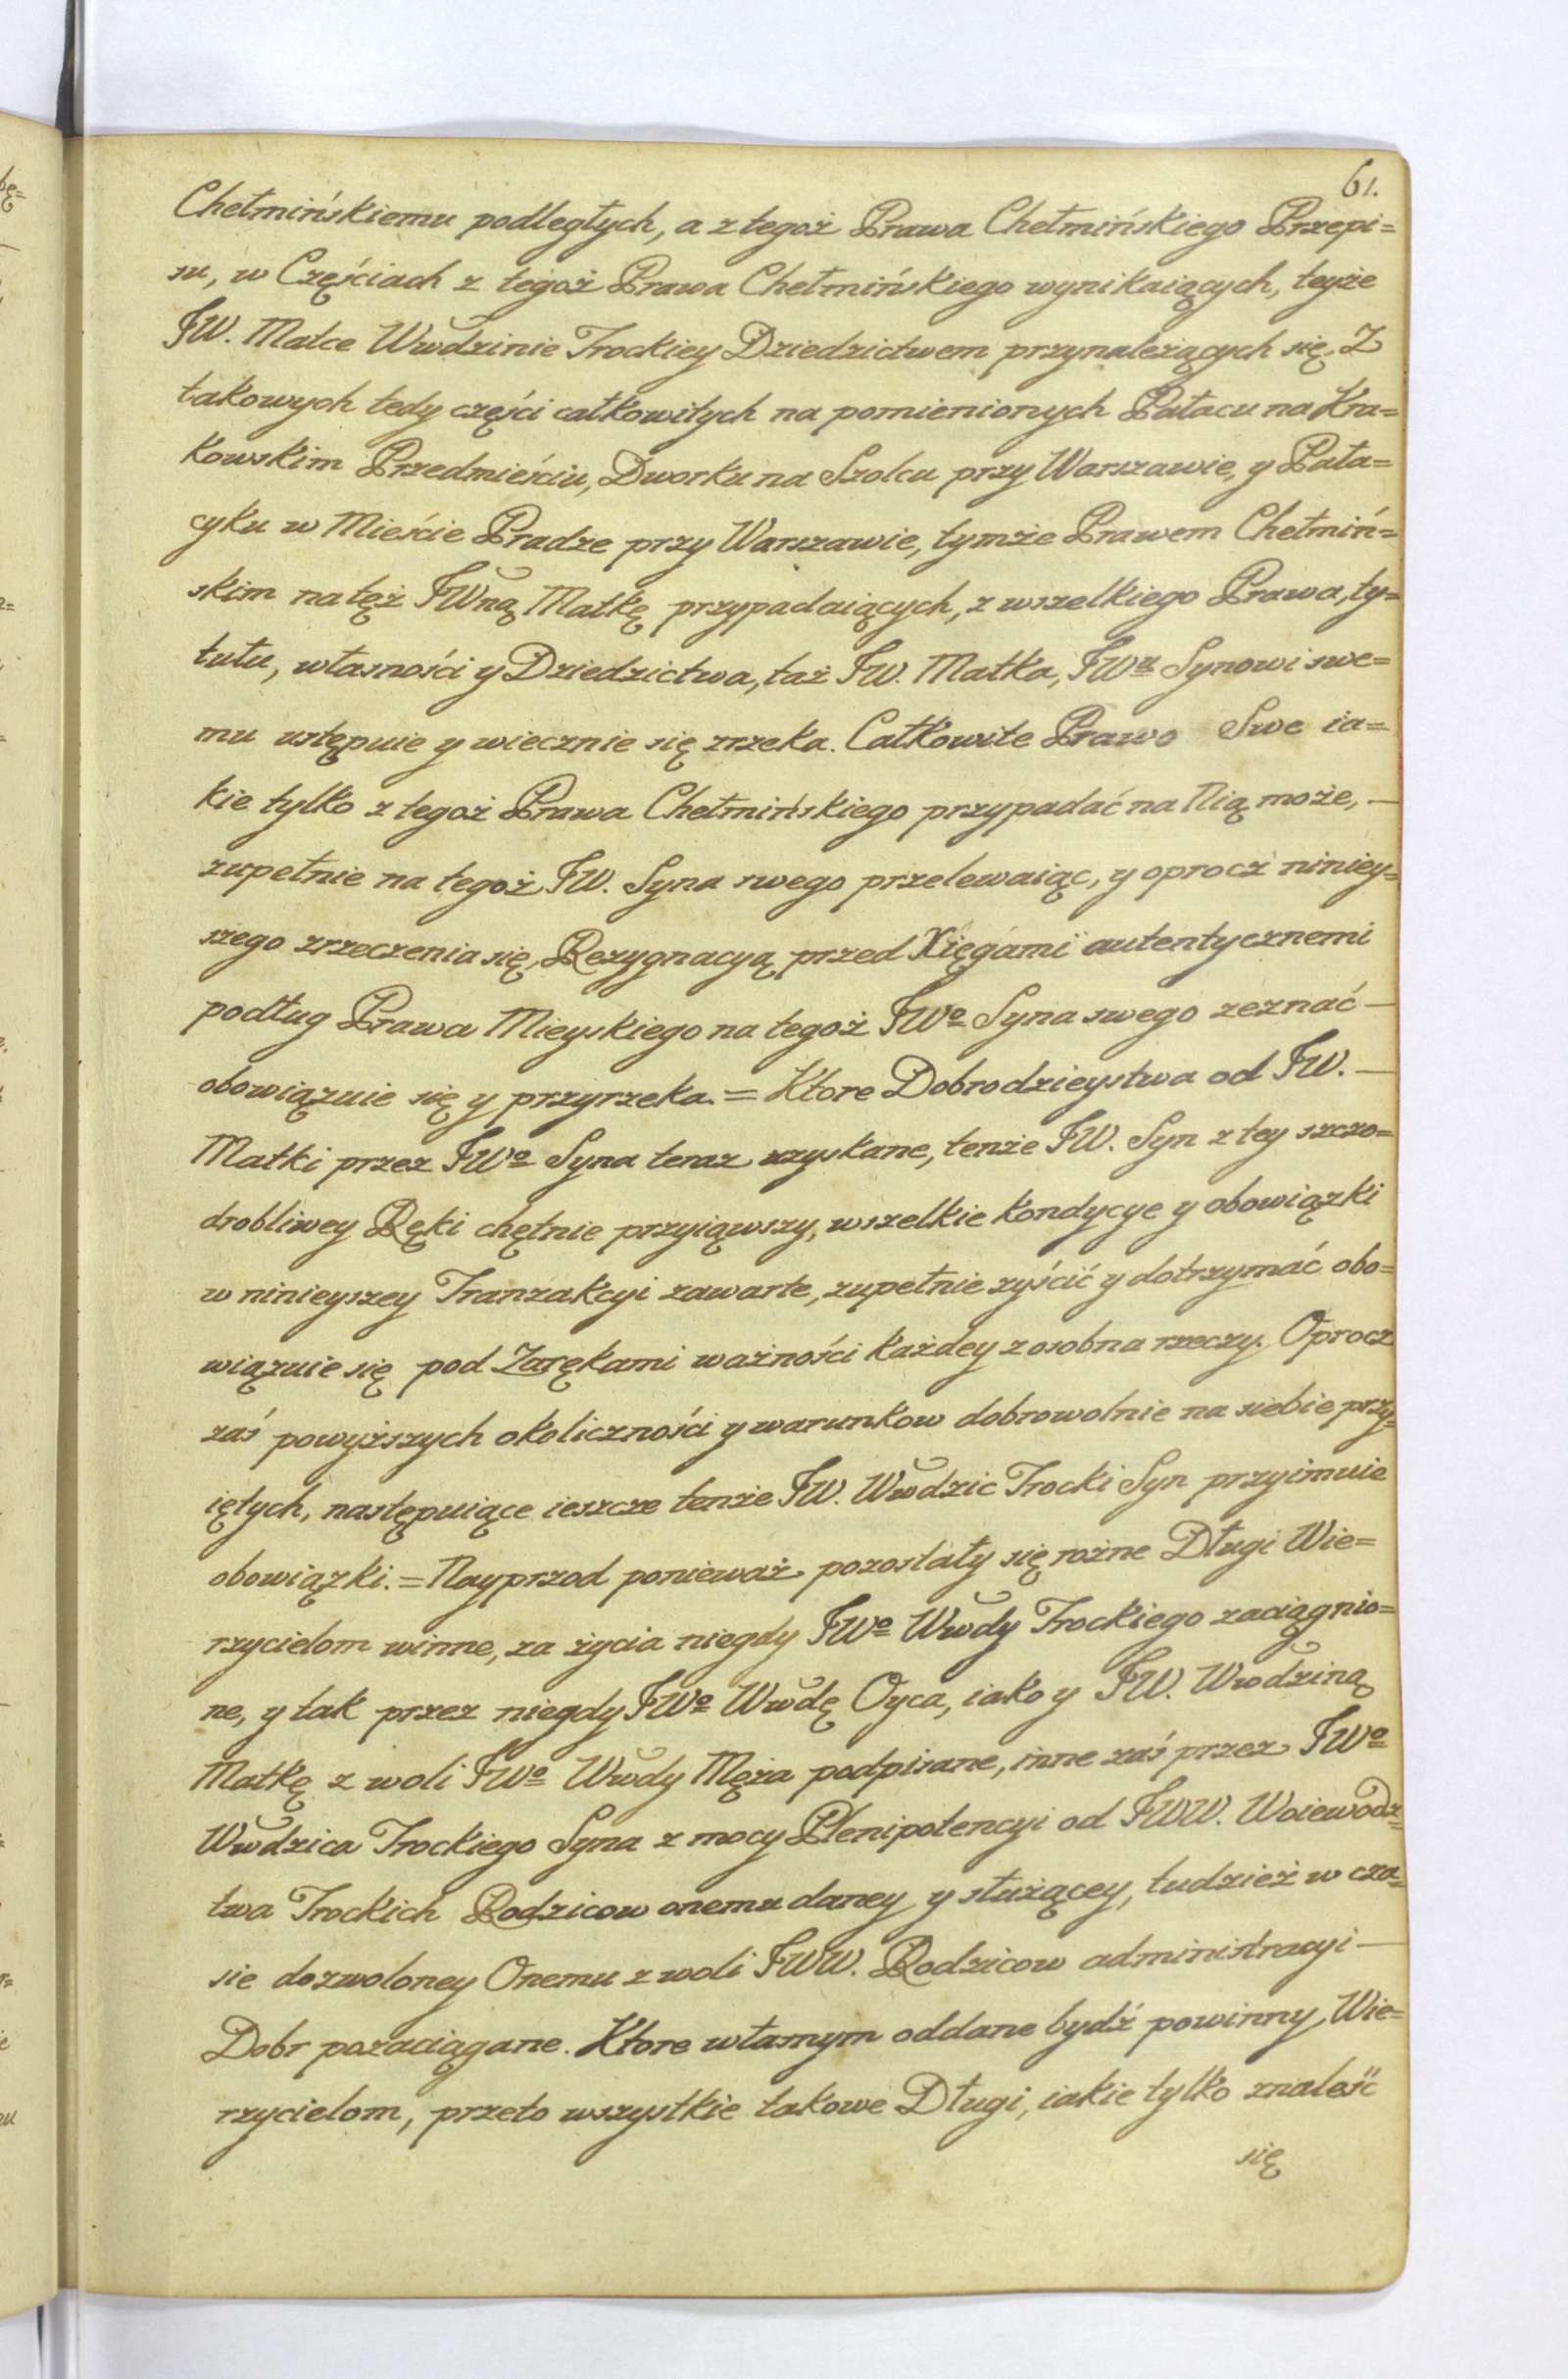 61.
Chełmińskiemu podległych, a z tegoż Prawa Chełmińskiego Przepi=
su, w Częściach z tegoż Prawa Chełmińskiego wynikaiących, teyże
JW. Matce Wwdzinie Trockiey Dziedzictwem przynależących się. Z
takowych tedy części całkowitych na pomienionych Pałacu na Kra=
kowskim Przedmieściu, Dworku na Szolcu przy Warszawie, y Pała=
cyku w Mieście Pradze przy Warszawie, tymże Prawem Chełmiń=
skim na też JWną Matkę przypadaiących, z wszelkiego Prawa, ty=
tułu, własności y Dziedzictwa, taż JW. Matka, JWu Synowi swe=
mu ustępuie y wiecznie się zrzeka. Całkowite Prawo Swe ia=
kie tylko z tegoż Prawa Chełmińskiego przypadać na Nią może, —
zupełnie na tegoż JW. Syna swego przelewaiąc, y oprocz niniey=
szego zrzeczenia się, Rezygnacyą przed Xięgami autentycznemi
podług Prawa Mieyskiego na tegoż JWo Syna swego zeznać —
obowiązuie się y przyrzeka. = Ktore Dobrodzieystwa od JW. —
Matki przez JWo Syna teraz uzyskane, tenże JW. Syn z tey szczo=
drobliwey Ręki chętnie przyiąwszy, wszelkie kondycye y obowiązki
w ninieyszey Tranzakcyi zawarte, zupełnie zyścić y dotrzymać obo=
wiązuie się pod Zarękami ważności każdey z osobna rzeczy. Oprocz
zaś powyższych okoliczności y warunkow dobrowolnie na siebie przy=
iętych, następuiące ieszcze tenże JW. Wwdzic Trocki Syn przyimuie
obowiązki. = Nayprzod ponieważ pozostały się rożne Długi Wie=
rzycielom winne, za życia niegdy JWo Wwdy Trockiego zaciągnio=
ne, y tak przez niegdy JWo Wwdę Oyca, iako y JW. Wwdziną
Matkę z woli JWo Wwdy Męża podpisane, inne zaś przez JWo
Wwdzica Trockiego Syna z mocy Plenipotencyi od JWW. Woiewodz=
twa Trockich Rodzicow onemu daney y służącey, tudzież w cza=
sie dozwoloney Onemu z woli JWW. Rodzicow administracyi —
Dobr pozaciągane. Ktore własnym oddane bydź powinny Wie=
rzycielom, przeto wszystkie takowe Długi, iakie tylko znaleść
się